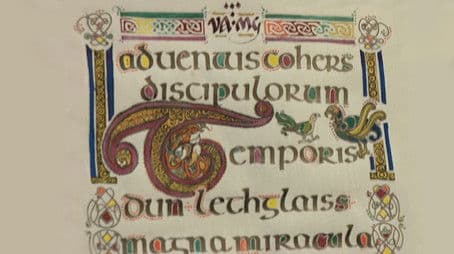 VA·MG
aduentus cohers
discipulorum
Temporis
dun·lethglaiss·
magna miracula